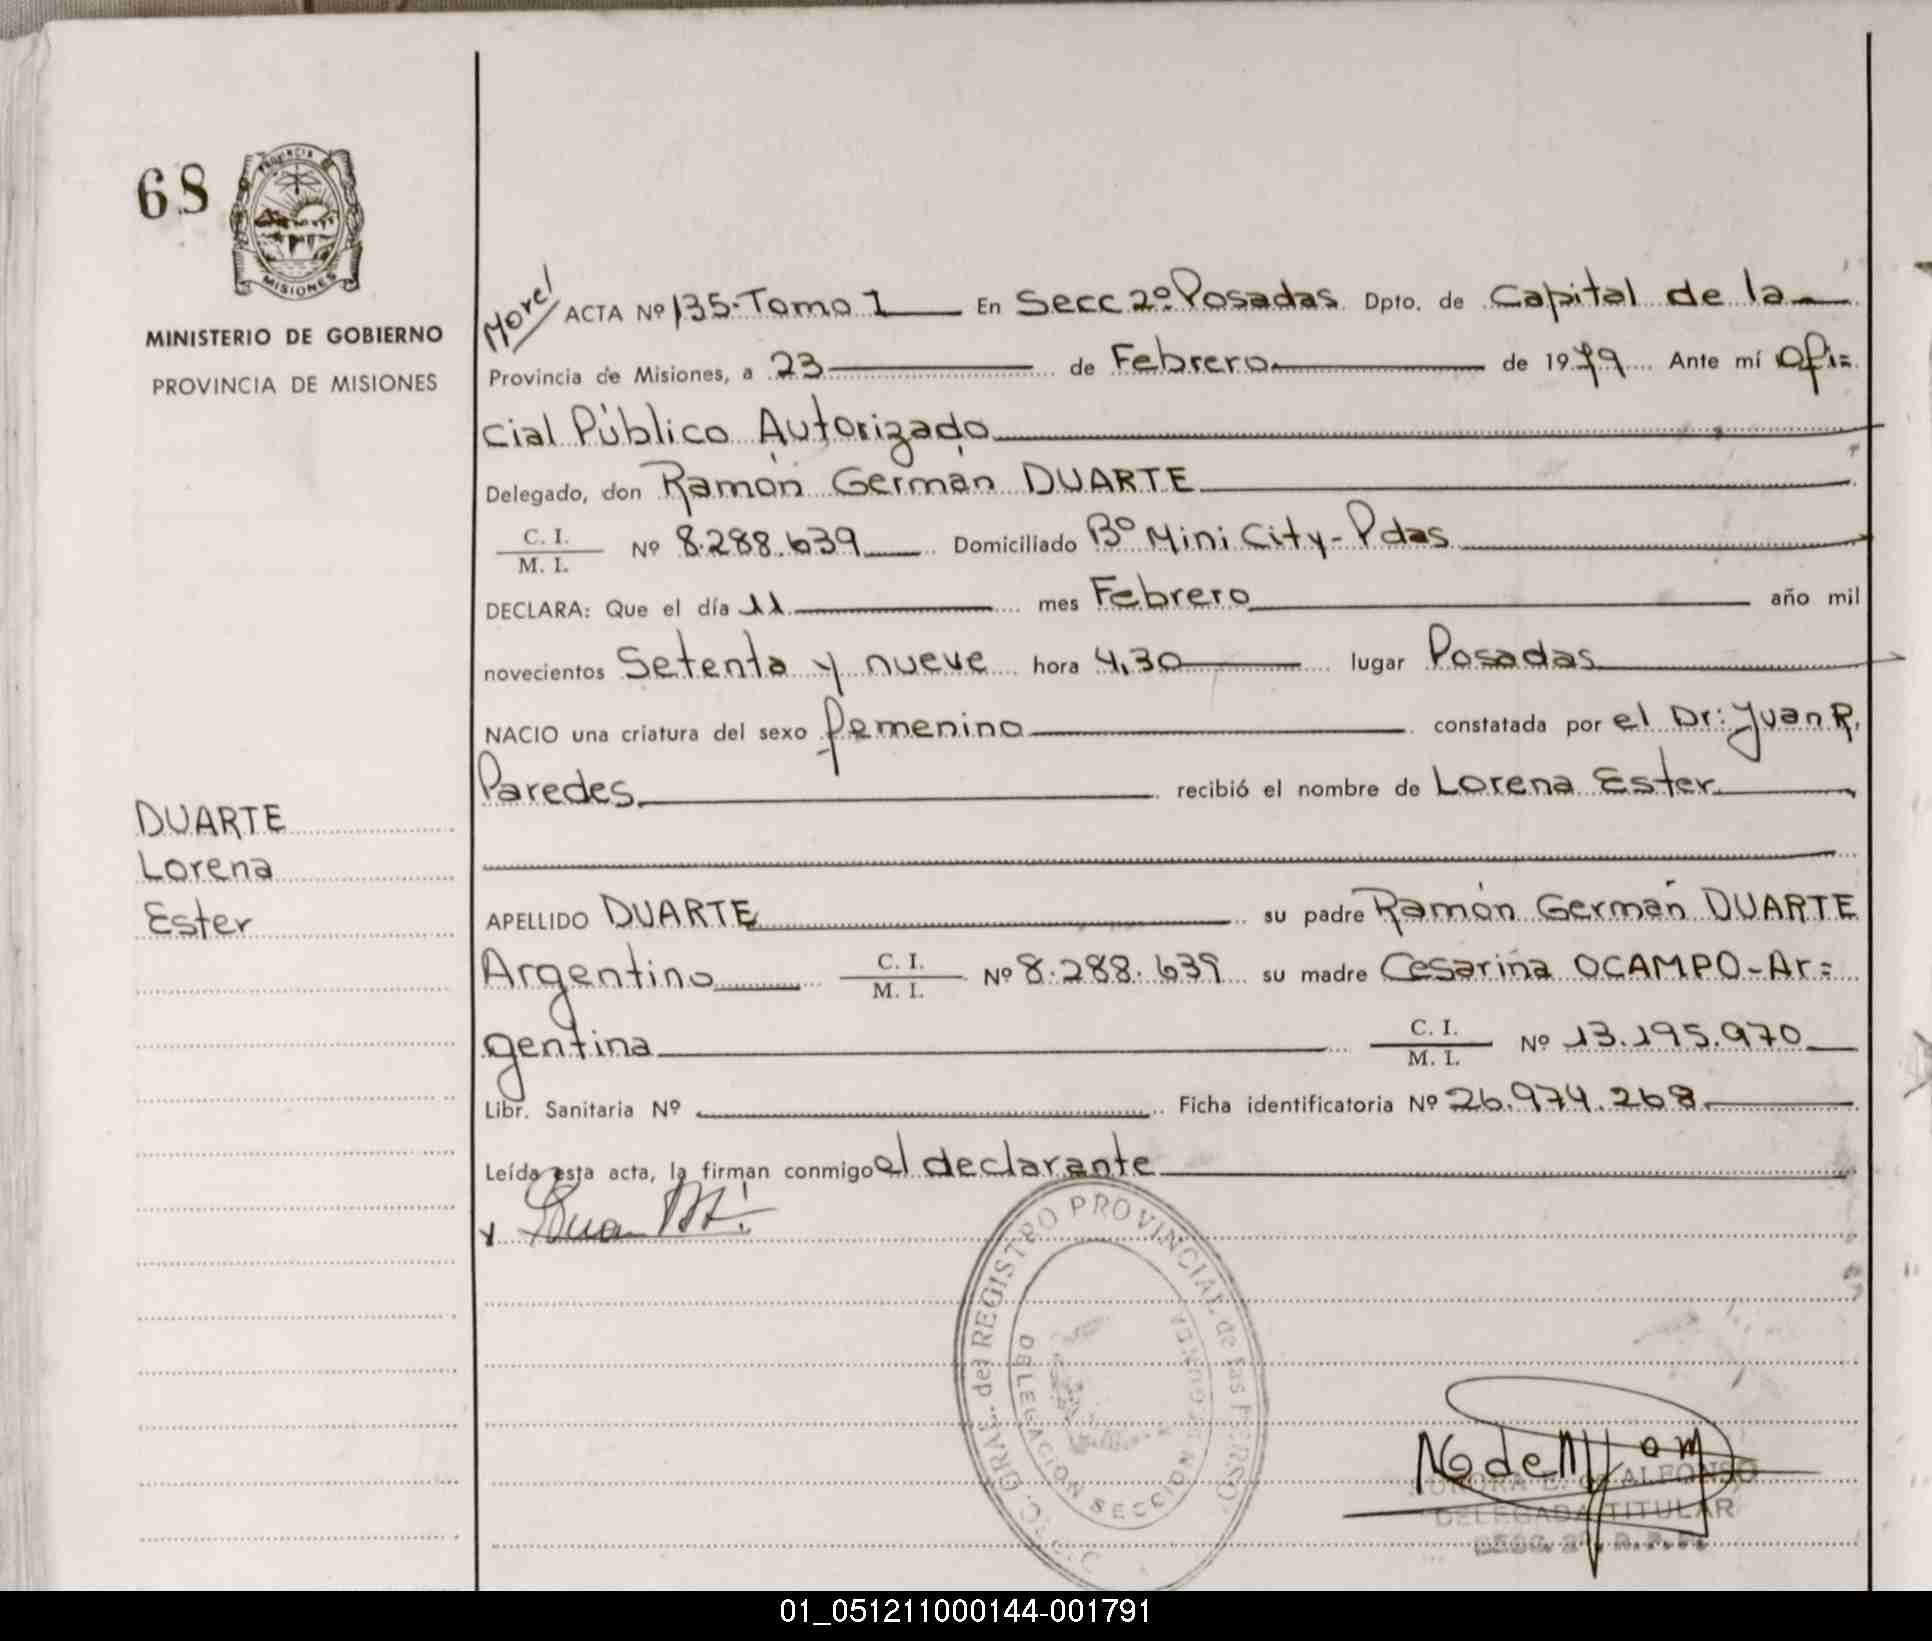 68
PROVINCIA DE
MISIONES
MINISTERIO DE GOBIERNO
PROVINCIA DE MISIONES
DUARTE
Lorena
Ester
Morel
ACTA Nº 135-Tomo 1 En Secc 2º Posadas Dpto. de Capital de la
Provincia de Misiones, a 23 de Febrero de 1979 Ante mí Ofi=
cial Público Autorizado
Delegado, don Ramón Germán DUARTE
C. I.
M. I. Nº 8.288.639 Domiciliado Bº Mini City-Pdas
DECLARA: Que el día 11 mes Febrero año mil
novecientos Setenta y nueve hora 4,30 lugar Posadas
NACIO una criatura del sexo femenino constatada por el Dr: Juan R.
Paredes recibió el nombre de Lorena Ester
APELLIDO DUARTE su padre Ramón Germán DUARTE
Argentino C. I. M. I. Nº 8.288.639 su madre Cesarina OCAMPO-Ar=
gentina C. I. M. I. Nº 13.195.970
Libr. Sanitaria Nº Ficha identificatoria Nº 26.974.268
Leída esta acta, la firman conmigo el declarante
y
REGISTRO PROVINCIAL de las PERSO
DELEGACION SECCION
de ALFONSO
DELEGADA TITULAR
01_051211000144-001791